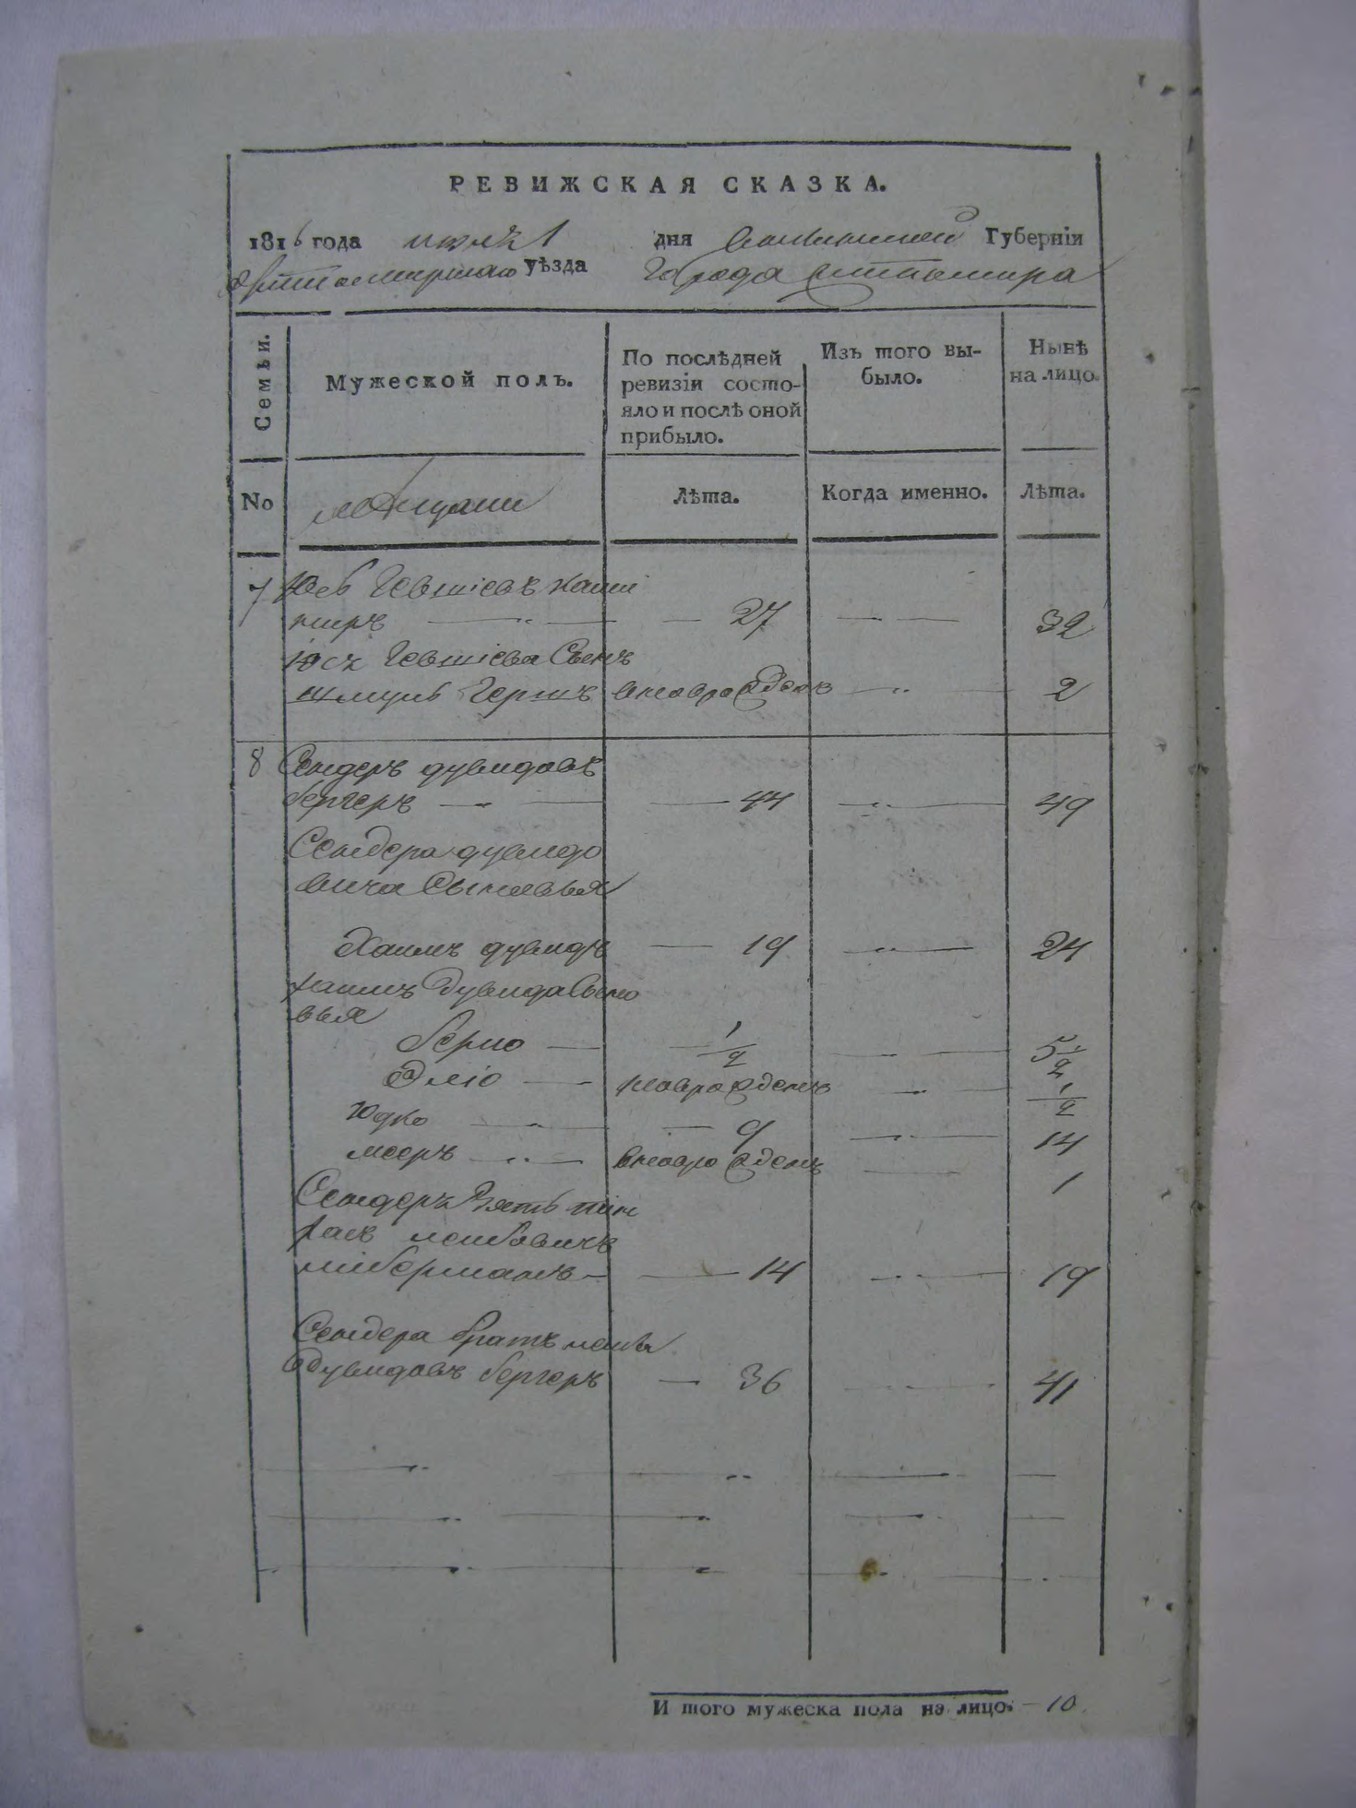 РЕВИЖСКАЯ СКАЗКА.
1816 года июля 1 дня Волынской Губерніи
Житомирскаго уѣзда Города Житомира
Семьи.
Мужеской полъ.
По послѣдней ревизіи состояло и послѣ оной прибыло.
Изъ того выбыло.
Нынѣ на лицо.
No
мѣщани
Лѣта.
Когда именно.
Лѣта.
7
пиръ 27 32
Сынъ
шмуль Гершъ вновь рожденъ 2
8 Сендеръ дувидовъ
бергеръ 44 49
Сендера дувидо
вича Сыновья
Хаимъ дувидъ 19 24
Хаимъ Дувида Сыно
вья
Берко 1/2 5 1/2
Эліо новорожденъ 1/2
Юдко 9 14
мееръ вновь рожденъ 1
Сендера Зять пин
хас лейбовичъ
либерманъ 14 19
Сендера братъ лейба
Дувидовъ бергеръ 36 41
И того мужеска пола на лицо. 10